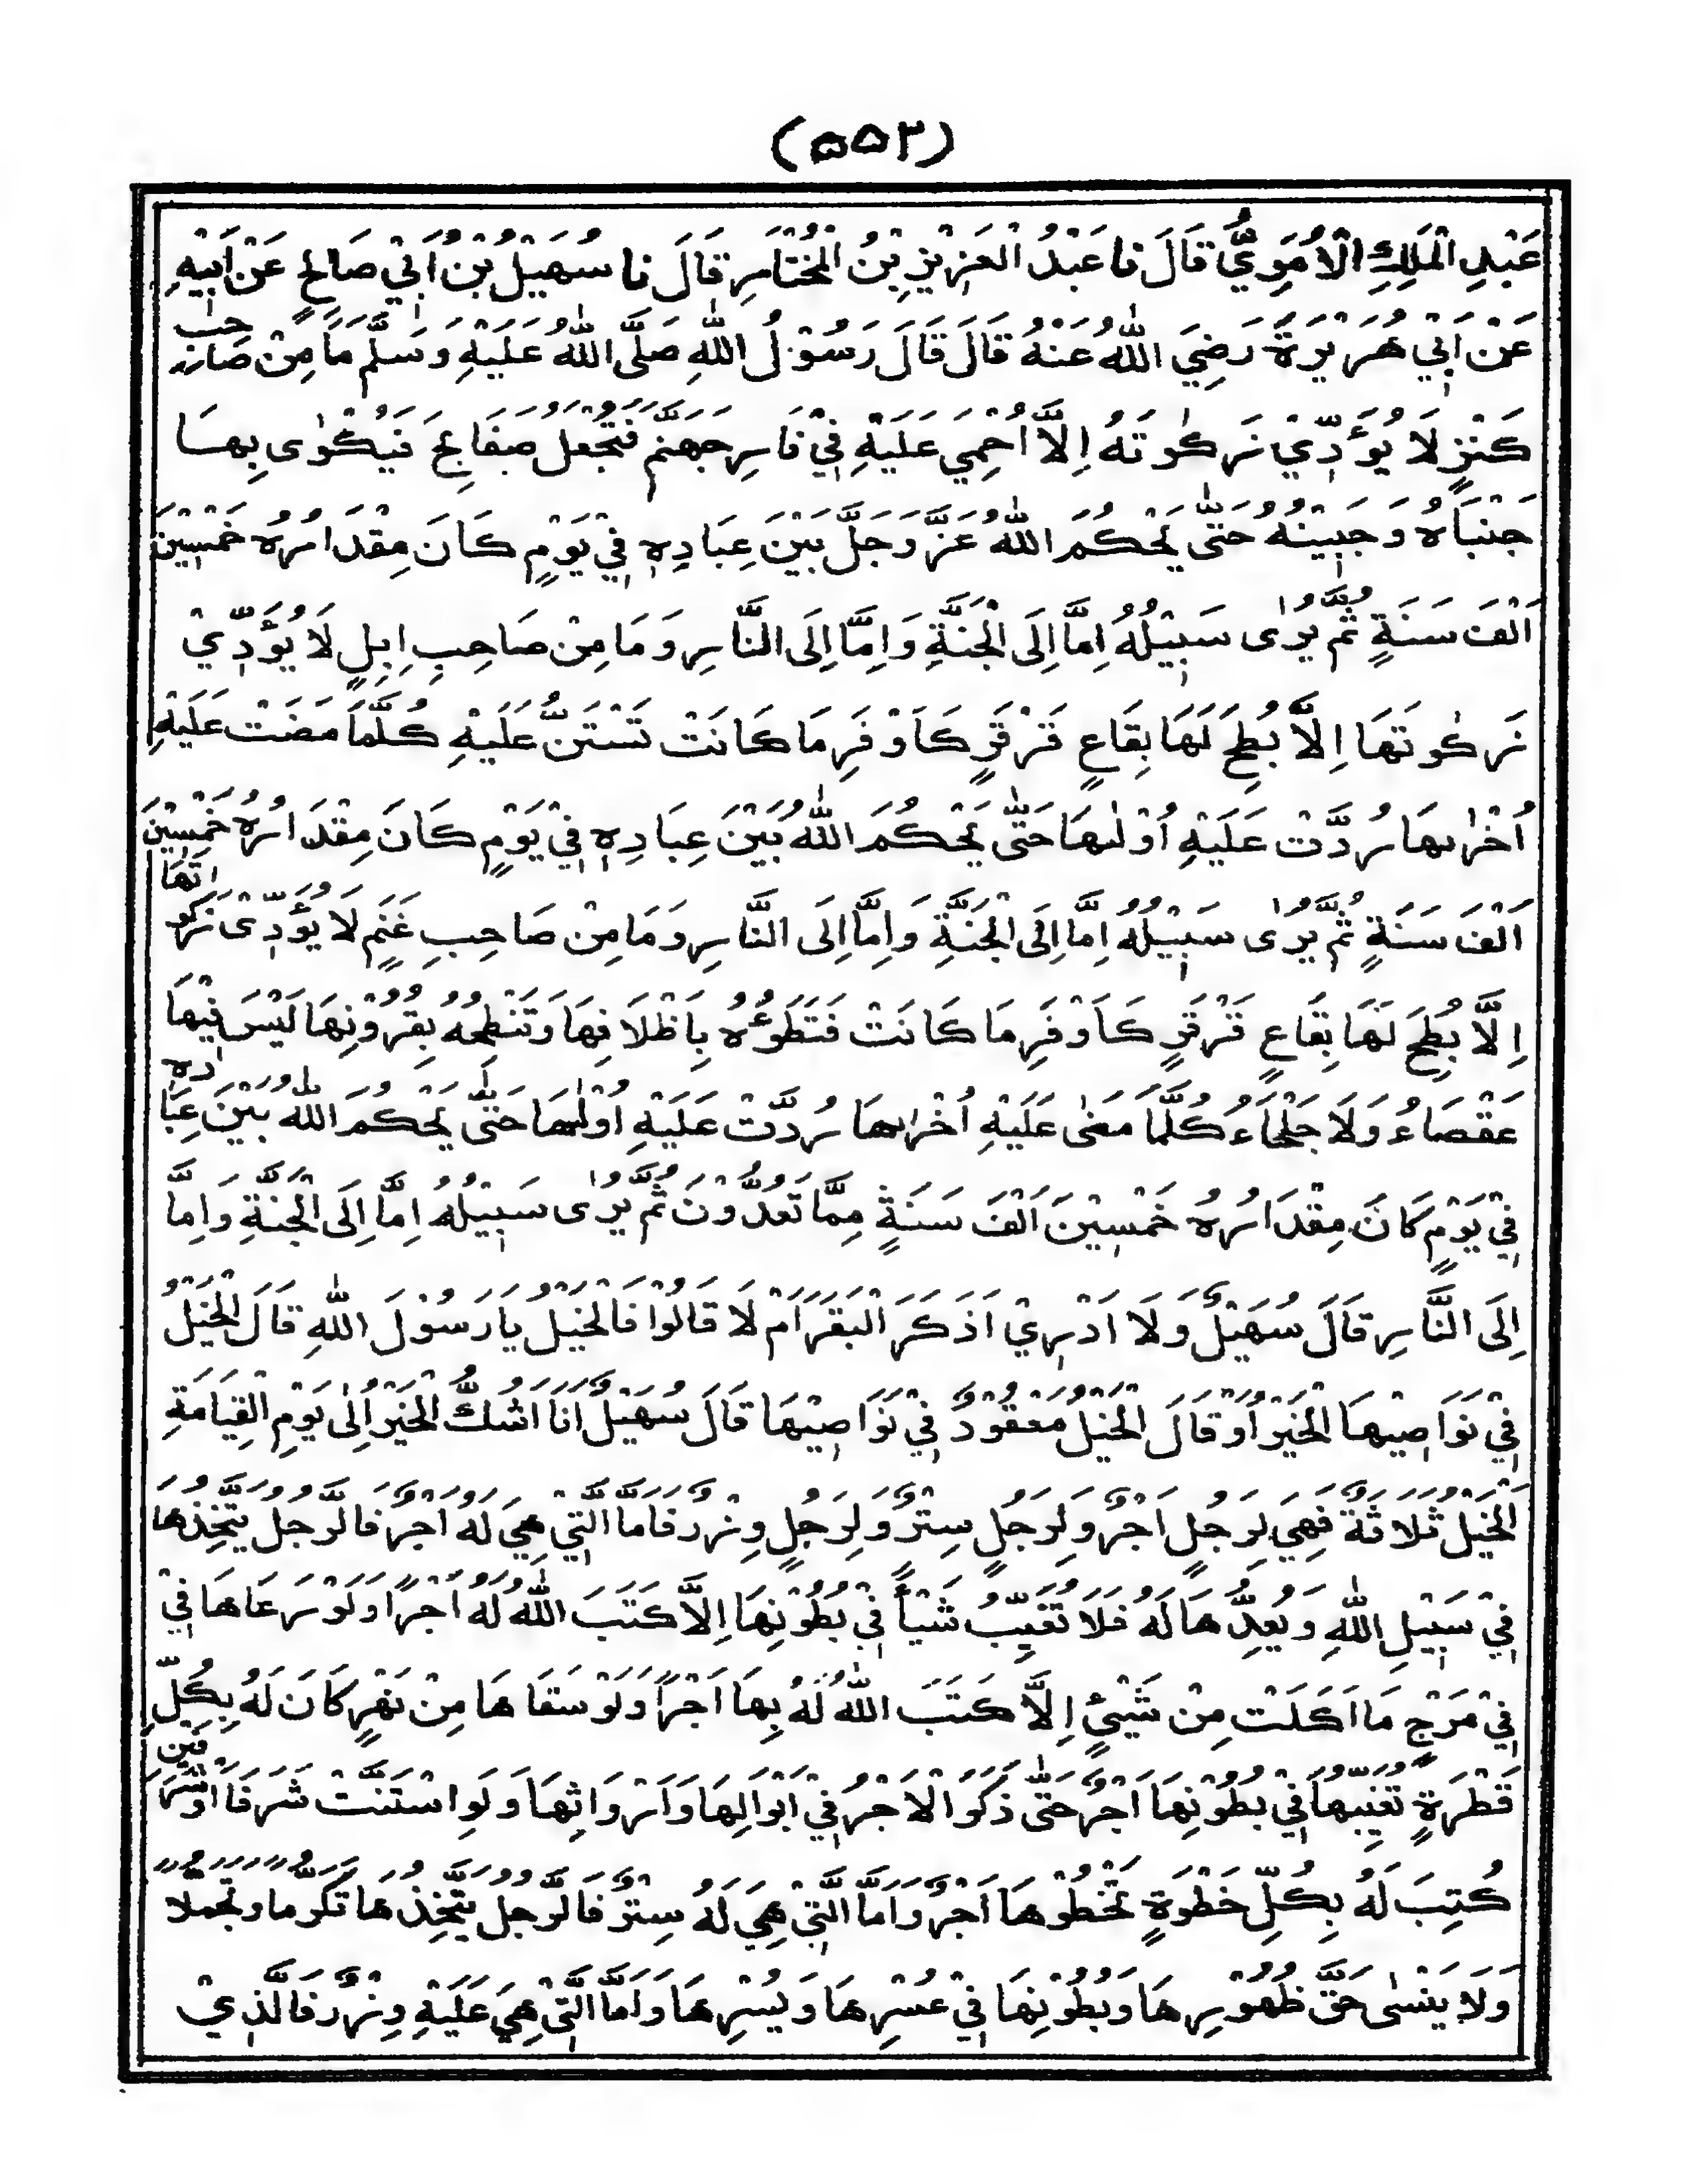 (۵۵۳)
عَبْدِ الْمَلِكِ الْأُمَوِيُّ قَالَ نَا عَبْدُ الْعَزِيْزِ بْنُ الْمُخْتَارِ قَالَ نَا سُهَيْلُ بْنُ اَبِيْ صَالِحٍ عَنْ اَبِيْهِ
عَنْ اَبِيْ هُرَيْرَةَ رَضِيَ اللّٰهُ عَنْهُ قَالَ قَالَ رَسُوْلُ اللّٰهِ صَلَّى اللّٰهُ عَلَيْهِ وَسَلَّمَ مَا مِنْ صَاحِبِ
كَنْزٍ لَا يُؤَدِّيْ زَكٰوتَهُ اِلَّا اُحْمِيَ عَلَيْهِ فِيْ نَارِ جَهَنَّمَ فَتُجْعَلُ صَفَائِحَ فَيُكْوٰى بِهَا
جَنْبَاهُ وَجَبِيْنُهُ حَتّٰى يَحْكُمَ اللّٰهُ عَزَّ وَجَلَّ بَيْنَ عِبَادِهٖ فِيْ يَوْمٍ كَانَ مِقْدَارُهُ خَمْسِيْنَ
اَلْفَ سَنَةٍ ثُمَّ يُرٰى سَبِيْلُهُ اِمَّا اِلَى الْجَنَّةِ وَاِمَّا اِلَى النَّارِ وَمَا مِنْ صَاحِبِ اِبِلٍ لَا يُؤَدِّيْ
زَكٰوتَهَا اِلَّا بُطِحَ لَهَا بِقَاعٍ قَرْقَرٍ كَاَوْفَرِ مَا كَانَتْ تَسْتَنُّ عَلَيْهِ كُلَّمَا مَضَتْ عَلَيْهِ
اُخْرٰىهَا رُدَّتْ عَلَيْهِ اُوْلٰىهَا حَتّٰى يَحْكُمَ اللّٰهُ بَيْنَ عِبَادِهٖ فِيْ يَوْمٍ كَانَ مِقْدَارُهُ خَمْسِيْنَ
اَلْفَ سَنَةٍ ثُمَّ يُرٰى سَبِيْلُهُ اِمَّا اِلَى الْجَنَّةِ وَاِمَّا اِلَى النَّارِ وَمَا مِنْ صَاحِبِ غَنَمٍ لَا يُؤَدِّىْ زَكٰوتَهَا
اِلَّا بُطِحَ لَهَا بِقَاعٍ قَرْقَرٍ كَاَوْفَرِ مَا كَانَتْ فَتَطَؤُهُ بِاَظْلَافِهَا وَتَنْطِحُهُ بِقُرُوْنِهَا لَيْسَ فِيْهَا
عَقْصَاءُ وَلَا جَلْحَاءُ كُلَّمَا مَضٰى عَلَيْهِ اُخْرٰىهَا رُدَّتْ عَلَيْهِ اُوْلٰىهَا حَتّٰى يَحْكُمَ اللّٰهُ بَيْنَ عِبَادِهٖ
فِيْ يَوْمٍ كَانَ مِقْدَارُهُ خَمْسِيْنَ اَلْفَ سَنَةٍ مِمَّا تَعُدُّوْنَ ثُمَّ يُرٰى سَبِيْلُهُ اِمَّا اِلَى الْجَنَّةِ وَاِمَّا
اِلَى النَّارِ قَالَ سُهَيْلٌ وَلَا اَدْرِيْ اَذَكَرَ الْبَقَرَ اَمْ لَا قَالُوْا فَالْخَيْلُ يَا رَسُوْلَ اللّٰهِ قَالَ الْخَيْلُ
فِيْ نَوَاصِيْهَا الْخَيْرُ اَوْ قَالَ الْخَيْلُ مَعْقُوْدٌ فِيْ نَوَاصِيْهَا قَالَ سُهَيْلٌ اَنَا اَشُكُّ الْخَيْرُ اِلٰى يَوْمِ الْقِيَامَةِ
الْخَيْلُ ثَلَاثَةٌ فَهِيَ لِرَجُلٍ اَجْرٌ وَلِرَجُلٍ سِتْرٌ وَلِرَجُلٍ وِزْرٌ فَاَمَّا الَّتِيْ هِيَ لَهُ اَجْرٌ فَالرَّجُلُ يَتَّخِذُهَا
فِيْ سَبِيْلِ اللّٰهِ وَيُعِدُّهَا لَهُ فَلَا تُغَيِّبُ شَيْأً فِيْ بُطُوْنِهَا اِلَّا كَتَبَ اللّٰهُ لَهُ اَجْرًا وَلَوْ رَعَاهَا فِيْ
فِيْ مَرْجٍ مَا اَكَلَتْ مِنْ شَيْئٍ اِلَّا كَتَبَ اللّٰهُ لَهُ بِهَا اَجْرًا وَلَوْ سَقَاهَا مِنْ نَهْرٍ كَانَ لَهُ بِكُلِّ
قَطْرَةٍ تُغَيِّبُهَا فِيْ بُطُوْنِهَا اَجْرٌ حَتّٰى ذَكَرَ الْاَجْرَ فِيْ اَبْوَالِهَا وَاَرْوَاثِهَا وَلَوِ اسْتَنَّتْ شَرَفًا اَوْ شَرَفَيْنِ
كُتِبَ لَهُ بِكُلِّ خَطْوَةٍ تَخْطُوْهَا اَجْرٌ وَاَمَّا الَّتِيْ هِيَ لَهُ سِتْرٌ فَالرَّجُلُ يَتَّخِذُهَا تَكَرُّمًا وَتَجَمُّلًا
وَلَا يَنْسٰى حَقَّ ظُهُوْرِهَا وَبُطُوْنِهَا فِيْ عُسْرِهَا وَيُسْرِهَا وَاَمَّا الَّتِيْ هِيَ عَلَيْهِ وِزْرٌ فَالَّذِيْ